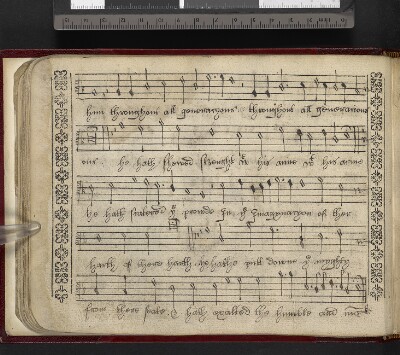 him throughout all generacyons throughout all generacions
ons he hath shewed strenght wt his arme wt his arme
he hath scatered ye proude in ye ymagynacyon of ther
harth of there harth he hathe putt downe ye myghty
from there seate & hath exalted the humble and meke